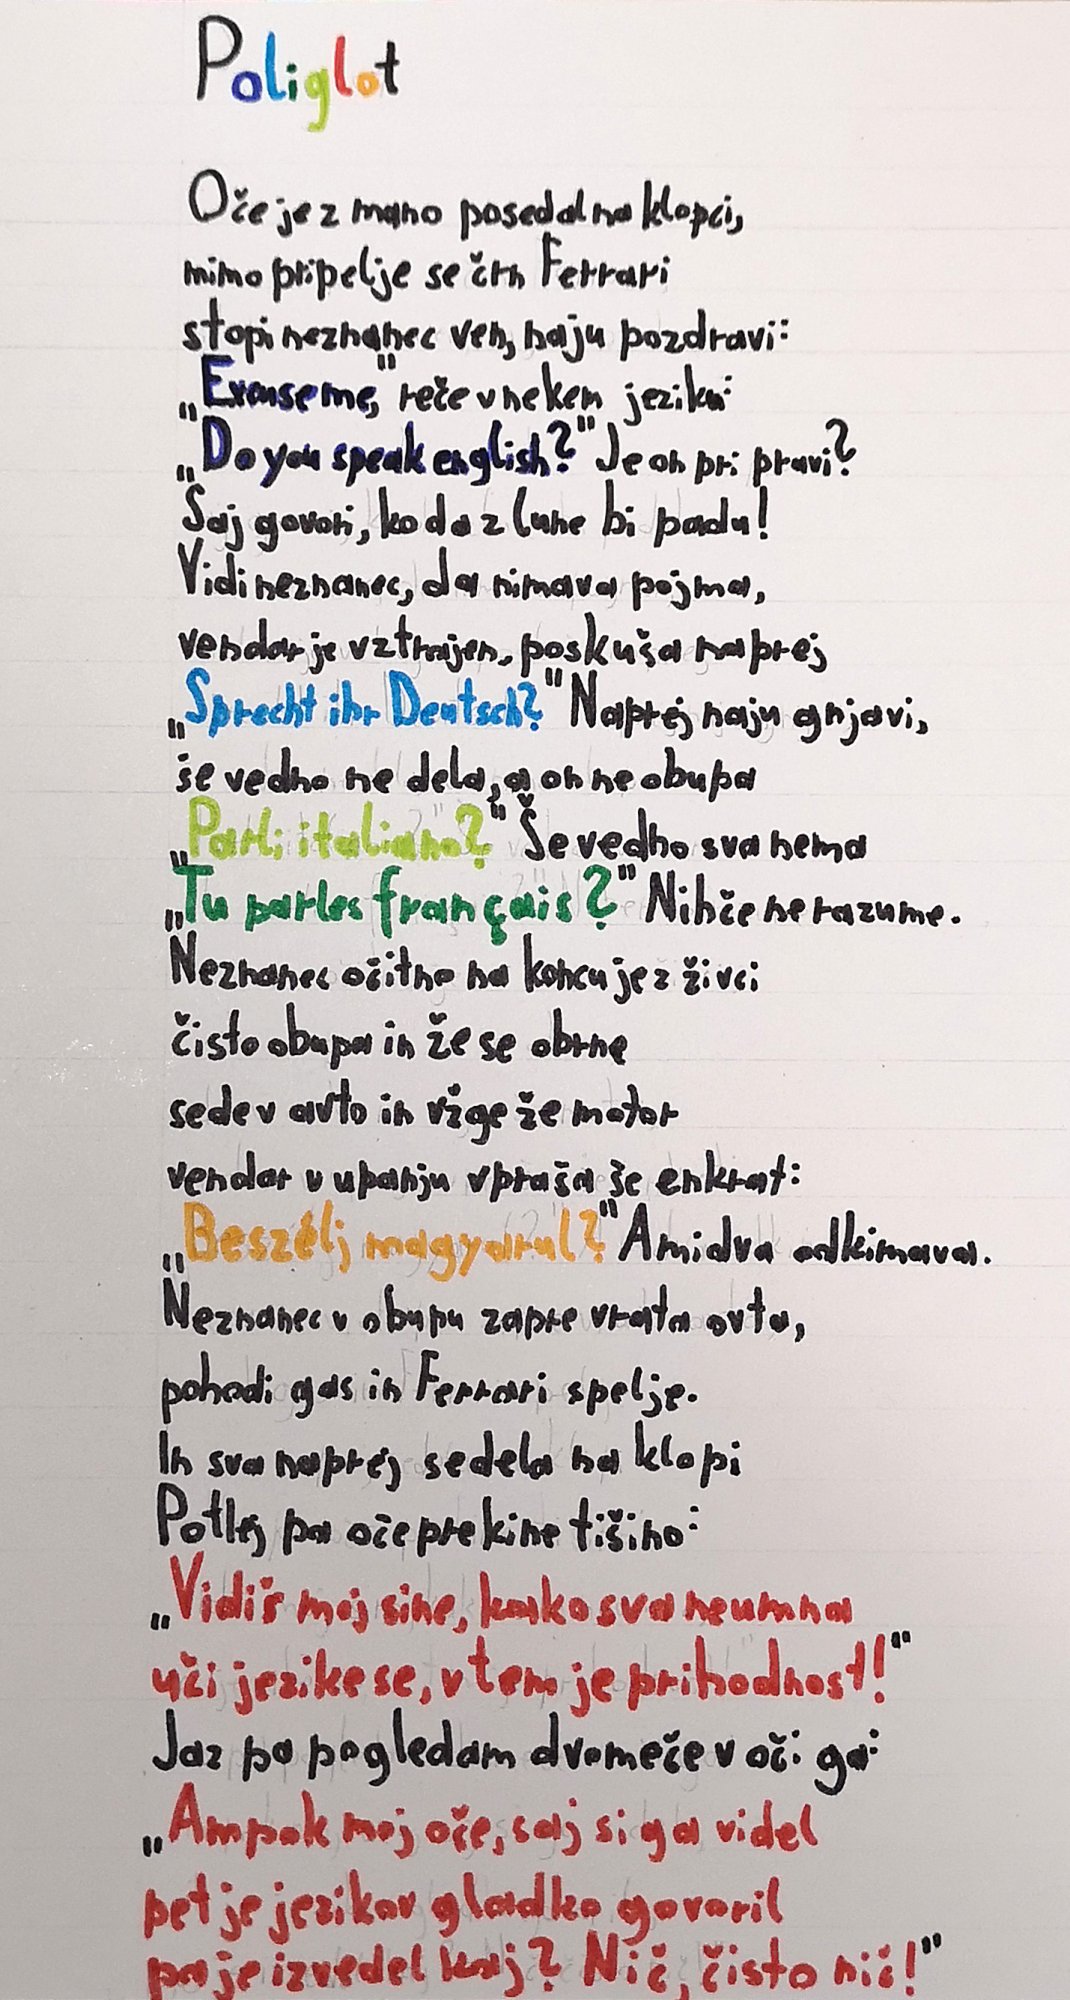 Poliglot
Oče je z mano posedal na klopci,
mimo pripelje se črn Ferrari
stopi neznanec ven, naju pozdravi:
„Excuse me," reče v nekem jeziku:
„Do you speak english?" Je on pri pravi?
Saj govori, ko da z lune bi padu!
Vidi neznanec, da nimava pojma,
vendar je vztrajen, poskuša naprej
„Sprecht ihr Deutsch?" Naprej naju gnjavi,
še vedno ne dela, a on ne obupa
„Parli italiano?" Še vedno sva nema
„Tu parles français?" Nihče ne razume.
Neznanec očitno na koncu je z živci
čisto obupa in že se obrne
sede v avto in vžge že motor
vendar v upanju vpraša še enkrat:
„Beszélj magyarul?" A midva odkimava.
Neznanec v obupu zapre vrata avta,
pohodi gas in Ferrari spelje.
In sva naprej sedela na klopi
Potlej pa oče prekine tišino:
„Vidiš moj sine, kako sva neumna
uči jezike se, v tem je prihodnost!"
Jaz pa pogledam dvomeče v oči ga:
„Ampak moj oče, saj si ga videl
pet je jezikov gladko govoril
pa je izvedel kaj? Nič, čisto nič!"